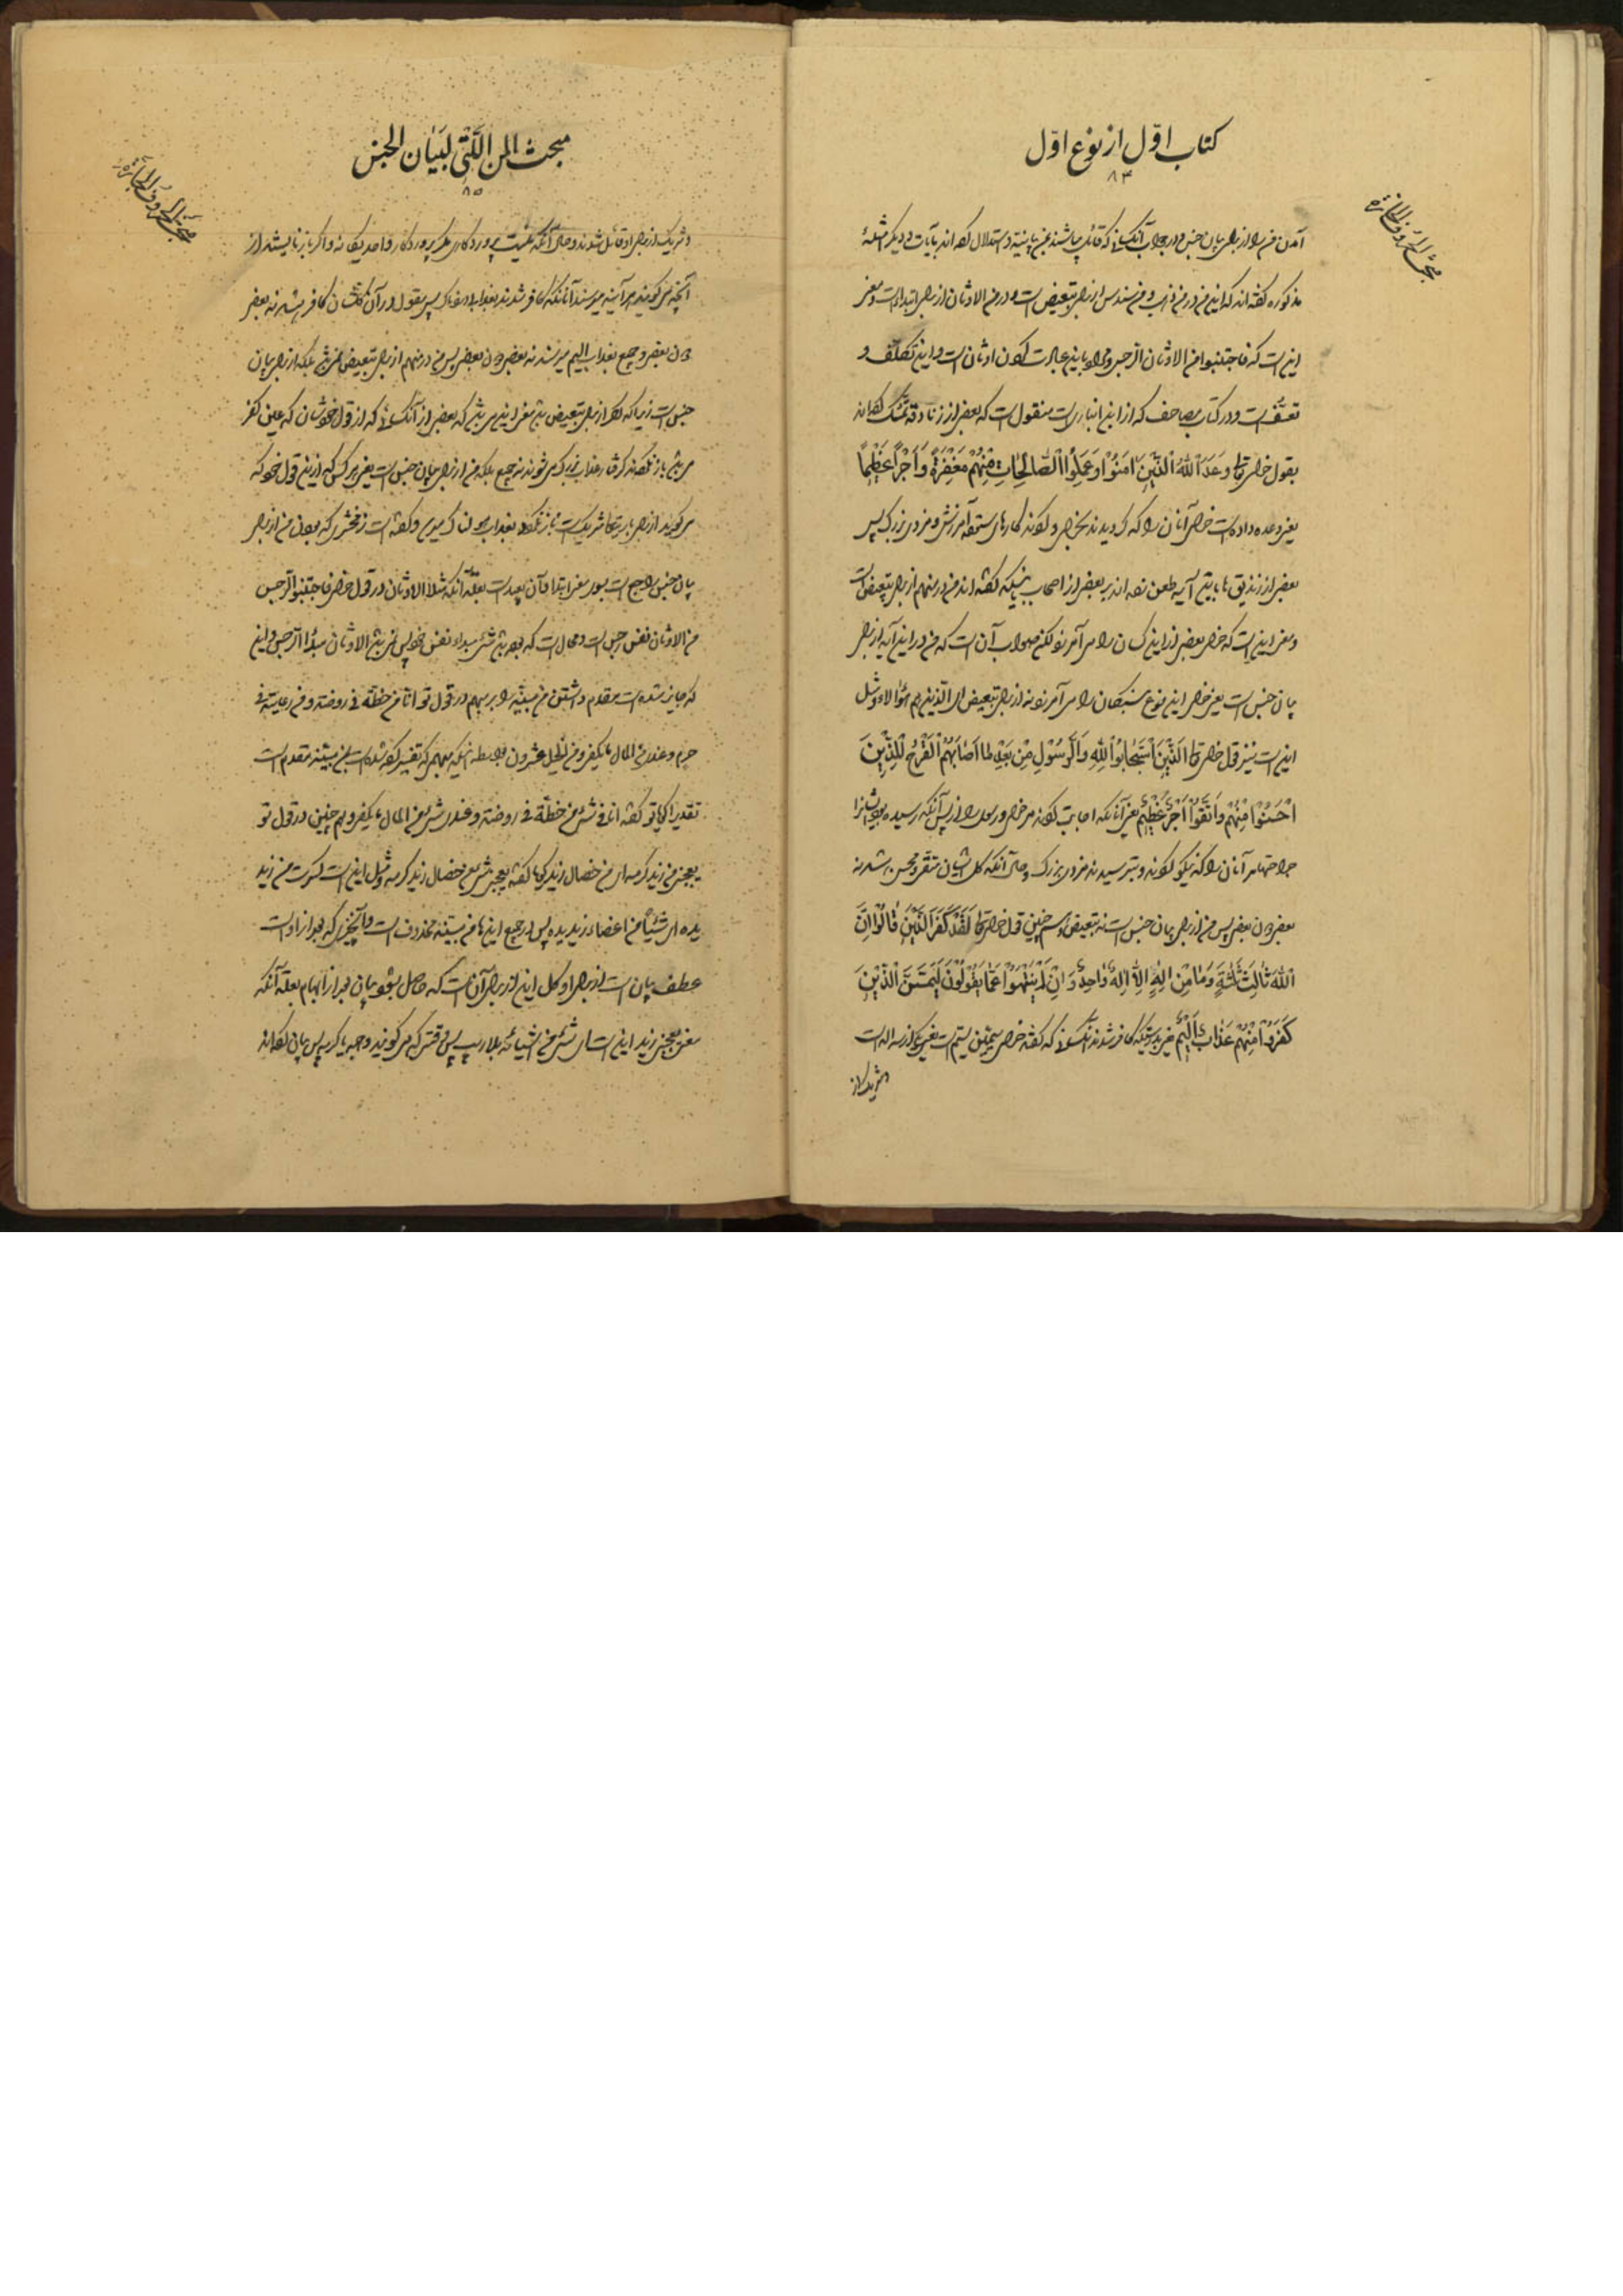 کتاب اوّل از نوع اوّل
۸۴
آمدن من را از برای بیان جنس و در جواب آنکسانی که قائل میباشند بمن بیانیة و استدلال کرده‌اند بآیات و دیگر امثلهٔ
مذکوره گفته‌اند که این من در من ذهب و من سندس از برای تبعیض است و در من الاوثان از برای ابتدا است و معنی
این است که فاجتنبوا من الاوثان الرجس و مراد باین عبادت کردن اوثان است و این تکلف و
تعسّف است و در کتاب مصاحف که از ابن انباری است منقول است که بعضی از زنادقه تمسّک کرده‌اند
بقول خدای تعالی وَعَدَ اللّٰهُ الَّذِینَ اٰمَنُوْا وَعَمِلُوا الصّٰالِحٰاتِ مِنْهُمْ مَغْفِرَةً وَاَجْرًا عَظِیْمًا
یعنی وعده داده است خدای آنان را که گرویدند بخدای و کردند کارهای ستوده آمرزش و مزدی بزرگ پس
بعضی از زندیق‌ها باین آیه طعن زده‌اند بر بعضی از اصحاب باینکه گفته‌اند من در منهم از برای تبعیض است
و معنی این است که خدای بعضی از این کسان را می‌آمرزد و لکن صواب آن است که من در این آیه از برای
بیان جنس است یعنی خدای این نوع بندگان را می‌آمرزد نه از برای تبعیض ای الذین هم هؤلاء و مثل
این است نیز قول خدای تعالی الَّذِیْنَ اسْتَجٰابُوْا لِلّٰهِ وَالرَّسُوْلِ مِنْ بَعْدِ مٰا اَصٰابَهُمُ الْقَرْحُ لِلَّذِیْنَ
اَحْسَنُوْا مِنْهُمْ وَاتَّقَوْا اَجْرٌ عَظِیْمٌ یعنی آنانکه اجابت کردند مر خدای و رسول را از پس آنکه رسیده بود ایشانرا
جراحتها مر آنان را که نیکو کردند و بترسیدند مزدی بزرگ و حال آنکه کل ایشان متقی و محسن باشند نه
بعضی دون بعضی پس من از برای بیان جنس است نه تبعیض و همچنین قول خدای تعالی لَقَدْ کَفَرَ الَّذِیْنَ قٰالُوْا اِنَّ
اللّٰهَ ثٰالِثُ ثَلٰثَةٍ وَمٰا مِنْ اِلٰهٍ اِلّٰا اِلٰهٌ وٰاحِدٌ وَاِنْ لَمْ یَنْتَهُوْا عَمّٰا یَقُوْلُوْنَ لَیَمَسَّنَّ الَّذِیْنَ
کَفَرُوْا مِنْهُمْ عَذٰابٌ اَلِیْمٌ یعنی بدرستیکه کافر شدند آنکسانی که گفتند خدای سیّمین سیّم است یعنی یکی از سه اله است
و شریک از
مبحث المن اللّتی لبیان الجنس
۸۵
و شریک از برای او قائل شدند و حال آنکه نیست پروردگاری مگر پروردگار واحد یگانه و اگر باز نایستند از
آنچه می‌گویند هرآینه میرسند آنانکه کافر شدند بعذاب دردناک پس مقول در آن کل ایشان کافر باشند نه بعضی
دون بعضی و جمیع بعذاب الیم میرسند نه بعضی دون بعضی پس من در منهم از برای تبعیض نمی‌باشد بلکه از برای بیان
جنس است زیرا که اگر از برای تبعیض باشد معنی این می‌باشد که بعضی از آنکسانی که از قول خودشان که عین کفر
می‌باشد باز نگردند گرفتار عذاب بزرگ می‌شوند نه جمیع بلکه من از برای بیان جنس است یعنی هر کس که از این قول خود که
می‌گوید از برای باری تعالی شریک است باز نگردد بعذاب هولناک میرسد و گفته است زمخشری که بودن من از برای
بیان جنس راجح است بودن بمعنی ابتدا و آن بعید است بعلّة آنکه مثلا الاوثان در قول خدای فاجتنبوا الرجس
من الاوثان نفس رجس است و محال است که بوده باشد شیء مبداء نفس خود پس نمی‌باشد الاوثان مبدأ الرجس و این
که جایز شده است مقدم داشتن من مبیّنه را بر مبهم در قول تو انا من خطّة فی روضة و من رعایته فی
حرم و عندی من المال ما یکفی و من الخیل عشرون بواسطه اینکه مبهمی که تفسیر کرده شده است بمن مبیّنه مقدم است
تقدیرا گویا تو گفته انا فی شیء من خطّة فی روضة و عندی شیء من المال ما یکفی و همچنین در قول تو
یعجبنی من زید کرمه ای من خصال زید گویا گفته یعجبنی شیء من خصال زید کرمه و مثل این است کسرت من زید
یده ای شیئًا من اعضاء زید یده پس در جمیع اینها من مبیّنه محذوف است و آنچیزی که بعد از او است
عطف بیان است از برای او کل این از برای آن است که حاصل بشود بیان بعد از ابهام بعلة آنکه
معنی یعجبنی زید این است ای شیء من اشیائه بلا ریب پس وقتی که می‌گوئید وجهه یا کرمه پس بیان کرده‌اند